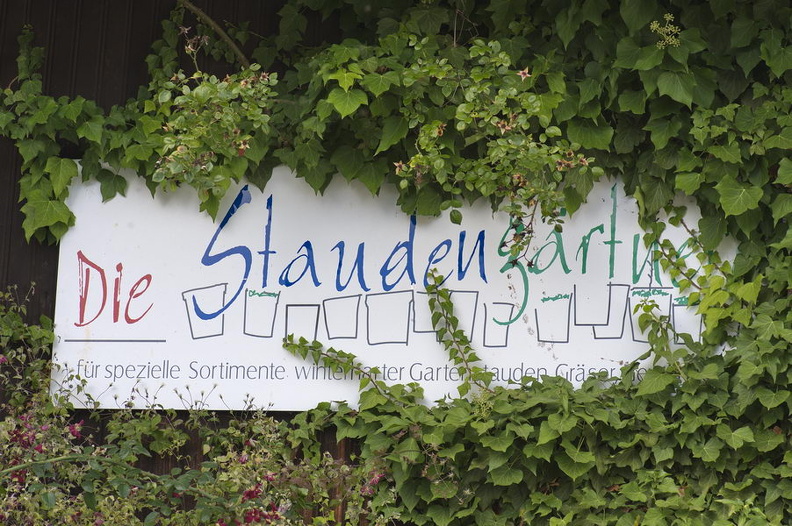 Die Staudengärtne
für spezielle Sortimente winterharter Gartenstauden Gräser